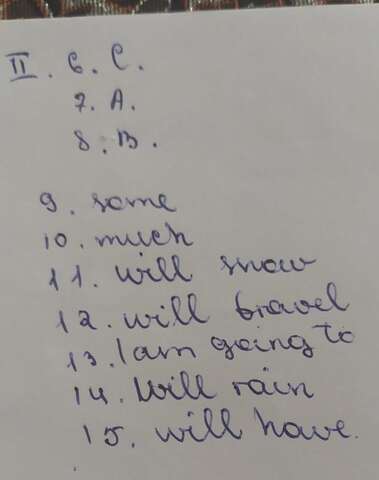 II. 6. C.
7. A.
8. B.
9. some
10. much
11. will snow
12. will travel
13. I am going to
14. Will rain
15. will have.